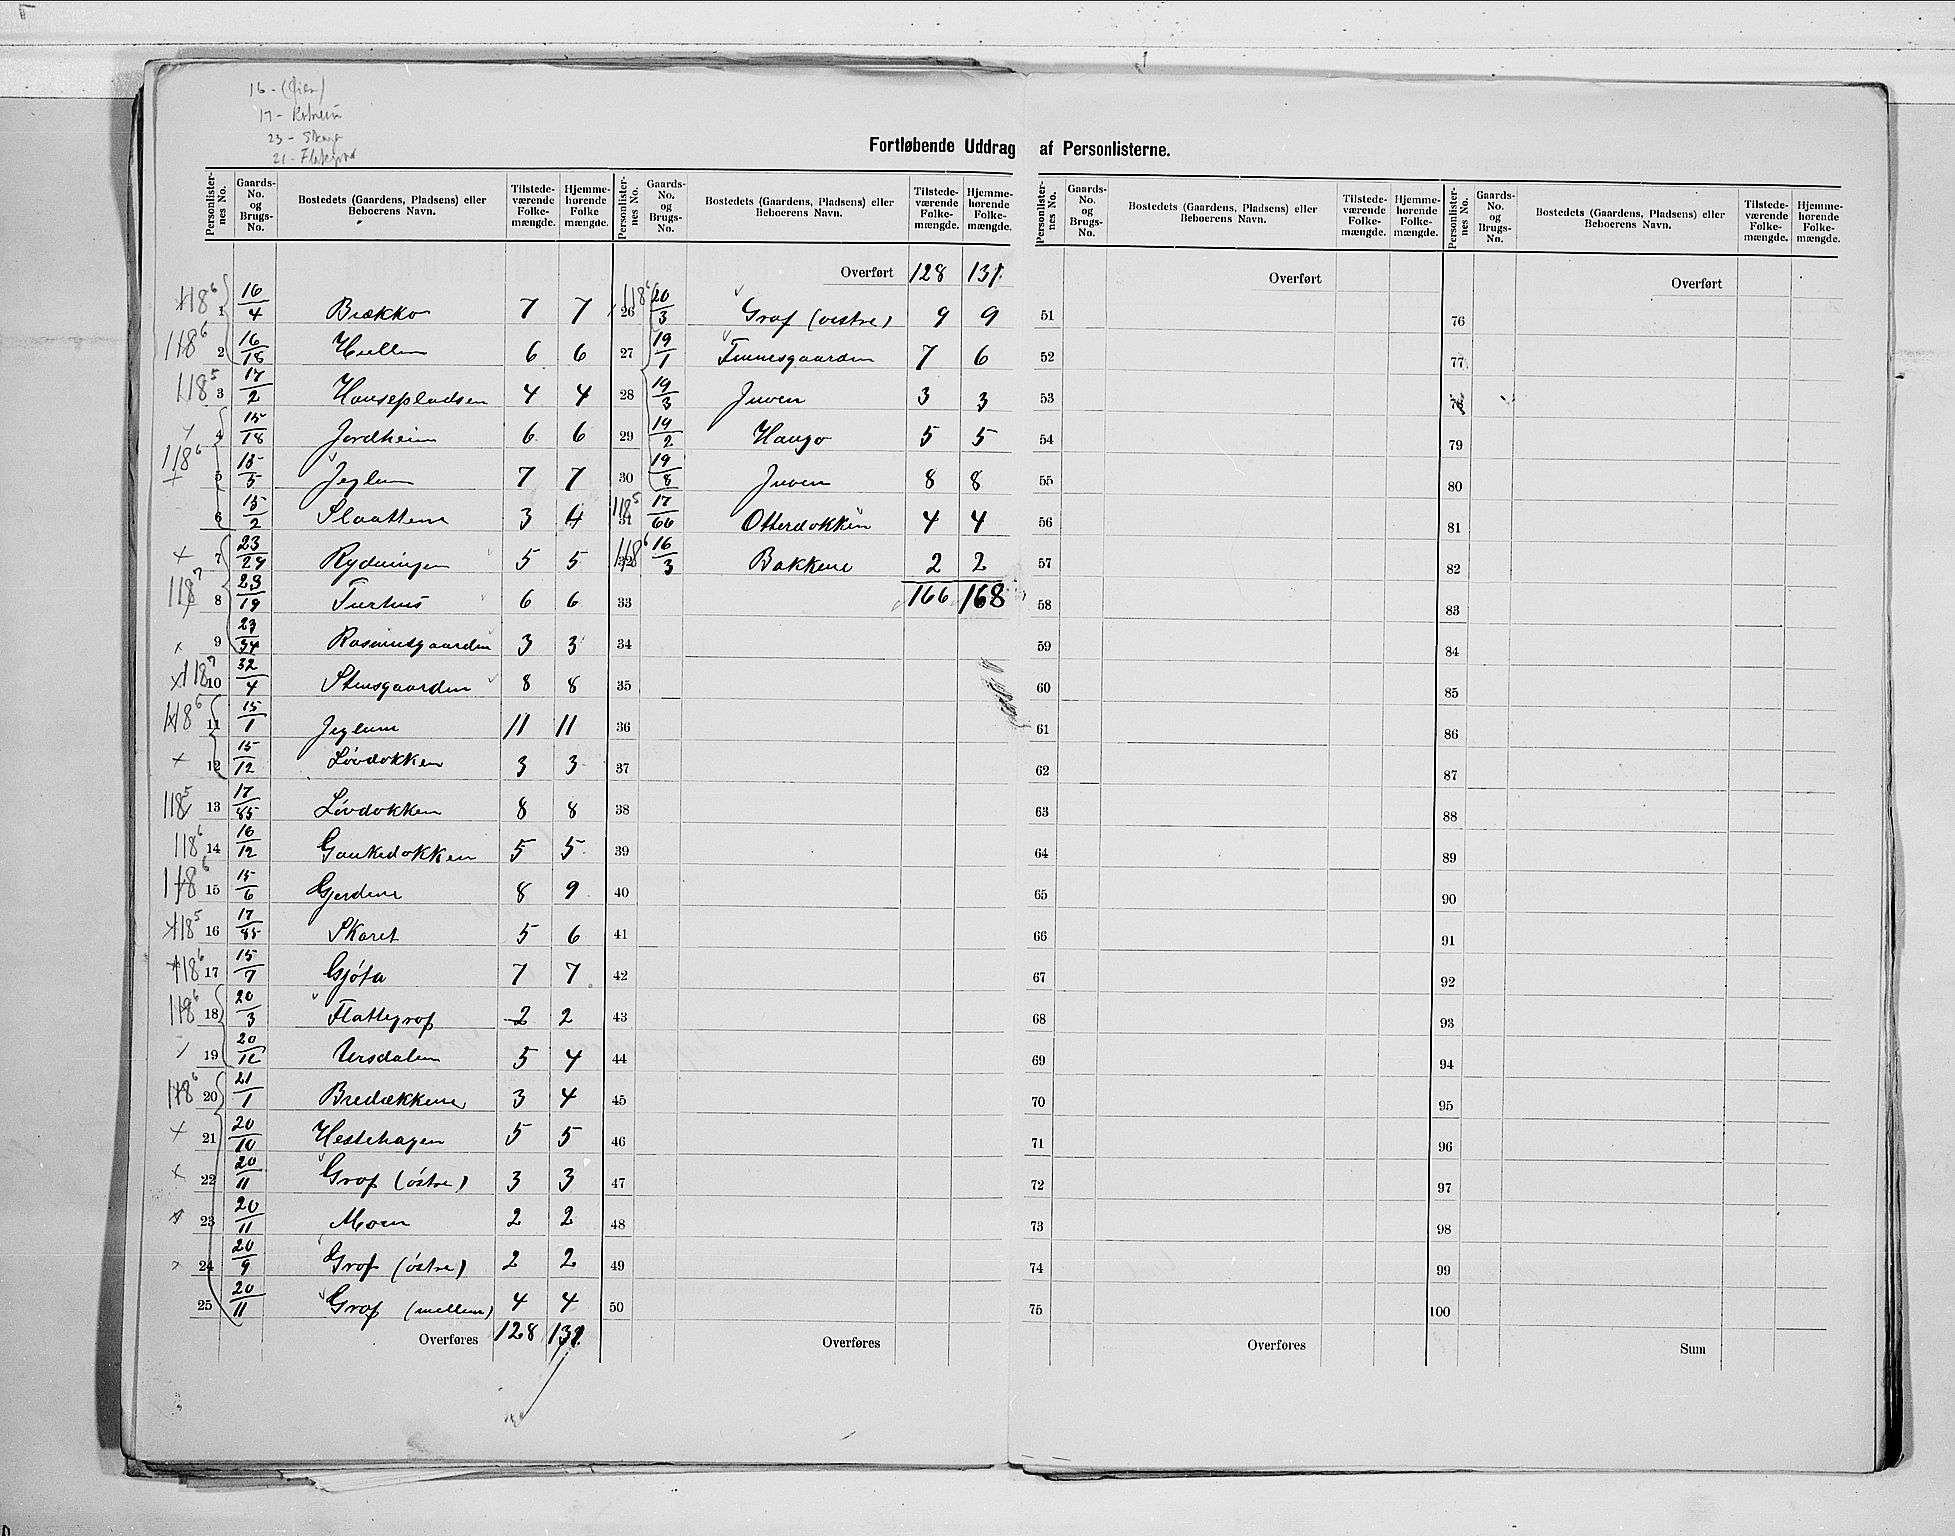 16 - (Øien)
17 -
23 -
21 -
Fortløbende Uddrag af Personlisterne.
Personlister-nes No. | Gaards-No. og Brugs-No. | Bostedets (Gaardens, Pladsens) eller Beboerens Navn. | Tilstede-værende Folke-mængde. | Hjemme-hørende Folke mængde.
118⁶ 1 16/4 Brækko 7 7
118⁶ 2 16/18 6 6
118⁵ 3 17/2 Hansepladsen 4 4
4 15/18 Jordheim 6 6
118⁶ 5 15/5 Jeglum 7 7
6 15/2 Slaattene 3 4
7 23/29 Rydningen 5 5
118⁷ 8 23/19 Turhus 6 6
9 23/34 Rasmusgaarden 3 3
118⁷ 10 32/4 Stensgaarden 8 8
118⁶ 11 15/1 Jeglum 11 11
12 15/12 Løvdokken 3 3
118⁵ 13 17/85 Løvdokken 8 8
118⁶ 14 16/12 Gaukedokken 5 5
118⁶ 15 15/6 Gjerdene 8 9
118⁵ 16 17/85 Skaret 5 6
118⁶ 17 15/7 Gjøta 7 7
118⁶ 18 20/3 Flattegrof 2 2
19 20/12 Ursdalen 5 4
118⁶ 20 21/1 Bredækkene 3 4
21 20/10 Hestehagen 5 5
22 20/11 Grof (østre) 3 3
23 20/11 Moen 2 2
24 20/9 Grof (østre) 2 2
25 20/11 Grof (mellem) 4 4
Overføres 128 131
Personlister-nes No. | Gaards-No. og Brugs-No. | Bostedets (Gaardens, Pladsens) eller Beboerens Navn. | Tilstede-værende Folke-mængde. | Hjemme-hørende Folke-mængde.
Overført 128 131.
118⁶ 26 20/3 Grof (vestre) 9 9
27 19/1 Finnesgaarden 7 6
28 19/3 Juven 3 3
29 19/2 Haugo 5 5
30 19/8 Juven 8 8
118⁵ 31 17/66 Otterdokken 4 4
118⁶ 32 16/3 Bakkene 2 2
33 166 168
34
35
36
37
38
39
40
41
42
43
44
45
46
47
48
49
50
Overføres
Personlister-nes No. | Gaards-No. og Brugs-No. | Bostedets (Gaardens, Pladsens) eller Beboerens Navn. | Tilstede-værende Folke-mængde. | Hjemme-hørende Folke-mængde.
Overført
51
52
53
54
55
56
57
58
59
60
61
62
63
64
65
66
67
68
69
70
71
72
73
74
75
Overføres
Personlister-nes No. | Gaards-No. og Brugs-No. | Bostedets (Gaardens, Pladsens) eller Beboerens Navn. | Tilstede-værende Folke-mængde. | Hjemme-hørende Folke-mængde.
Overført
76
77
78
79
80
81
82
83
84
85
86
87
88
89
90
91
92
93
94
95
96
97
98
99
100
Sum